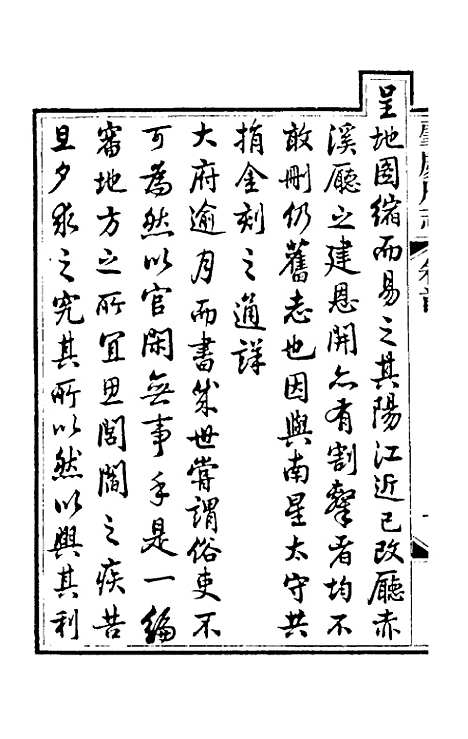 呈地圖縮而易之其陽江近已改廳赤
溪廳之建恩開亦有割鑿者均不
敢刪仍舊志也因與南星太守共
捐金刻之通詳
大府逾月而書成世嘗謂俗吏不
可為然以官閑無事手是一編
審地方之所宜思閭閻之疾苦
旦夕求之究其所以然以興其利
肇慶府志